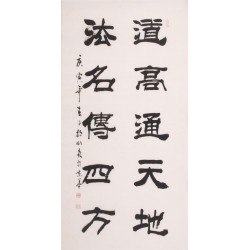 道高通天地
法名傳四方
庚寅年